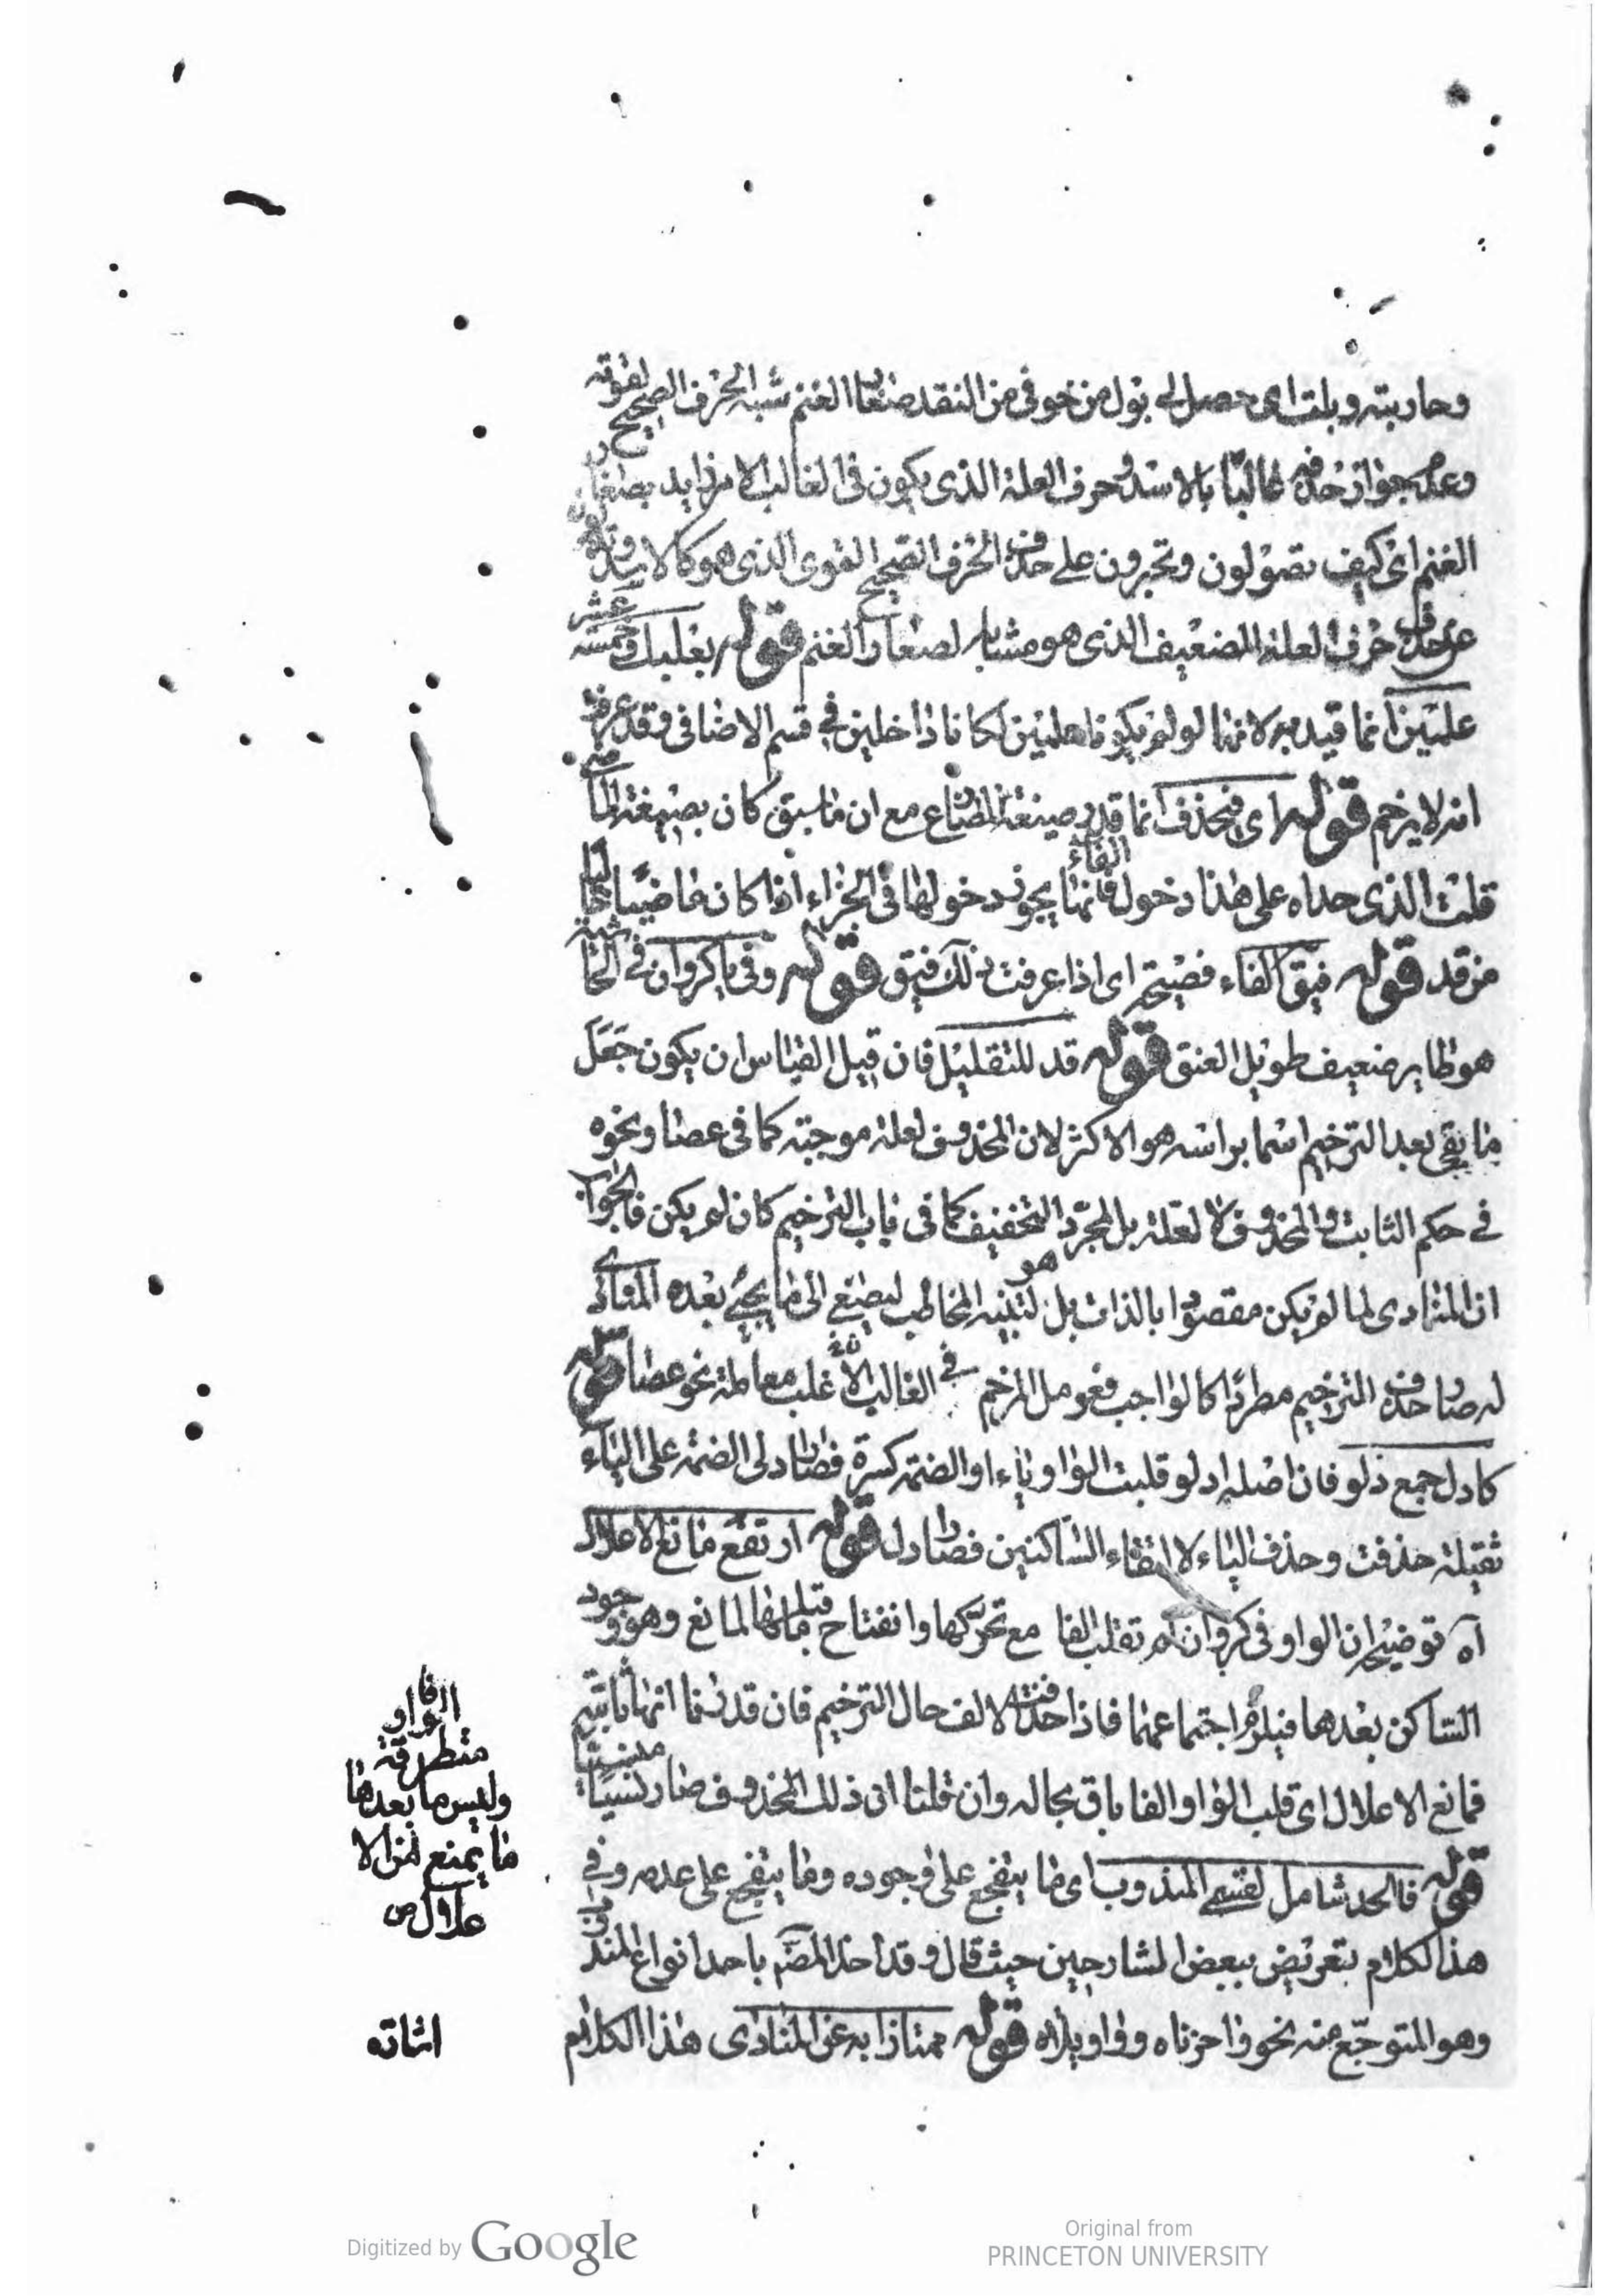 وحاربته وبلت اى حصل لى بول من خوفى من النقد صغار الغنم شبه الحرف الصحيح لقوته
وعدم جواز حذفه غالبا بالاسد وحرف العلة الذى يكون فى الغالب الامر زايد بصغار
الغنم اى كيف تصولون وتجبرون على حذف الحرف الصحيح القوى الذى هو كالاسد
عن حذف حرف العلة الضعيف الذى هو مشابه لصغار الغنم قوله بعلبك وخمسة عشر
علمين انما قيد به لانهما لو لم يكونا علمين لكانا داخلين فى قسم الاضافى وقد عرفت
انه لا يرخم قوله اى فيحذف انما قدر صيغة المضارع مع ان ما سبق كان بصيغة الماضى
قلت الذى حداه على هذا دخول الفاء فانها يجوز دخولها فى الجزاء اذا كان ماضيا خاليا
من قد قوله فيقى الفاء فصيحة اى اذا عرفت ذلك فيق قوله وفى يا كروان فى الحاشية
هو طاير ضعيف طويل العنق قوله قد للتقليل فان قيل القياس ان يكون جعل
ما بقى بعد الترخيم اسما براسه هو الاكثر لان المحذوف لعلة موجبة كما فى عصا ونحوه
فى حكم الثابت والمحذوف لا لعلة بل لمجرد التخفيف كما فى باب الترخيم كان لم يكن فالجواب
ان المنادى لما لم يكن مقصودا بالذات بل هو لتنبيه المخاطب ليصغى الى ما يجئ بعده المنادى
له صار حذف الترخيم مطردا كالواجب فعومل المرخم فى الغالب الاغلب معاملة نحو عصا قوله
كادل جمع دلو فان اصله ادلو قلبت الواو ياء او الضمة كسرة فصار ادلى الضمة على الياء
ثقيلة حذفت وحذف الياء لالتقاء الساكنين فصار ادل قوله ارتفع مانع الاعلال
آه توضيحه ان الواو فى كروان لم تقلب الفا مع تحركها وانفتاح ما قبلها لمانع وهو وجود
الساكن بعدها فيلزم اجتماعهما فاذا حذفت الالف حال الترخيم فان قدرنا انها ثابتة
فمانع الاعلال اى قلب الواو الفا باق بحاله وان قلنا ان ذلك المحذوف صار نسيا منسيا
قوله فالحد شامل لقسمى المندوب اى ما يتفجع على وجوده وما يتفجع على عدمه وفى
هذا الكلام تعريض ببعض الشارحين حيث قال وقد اخذ المص باحد انواع المندوب
وهو المتوجع منه نحو واحزناه وواويلاه قوله ممتازا به عن المنادى هذا الكلام
فالواو
متطرفة
وليس ما بعدها
ما يمنع من الا
علال ص
اشارة
Digitized by Google
Original from
PRINCETON UNIVERSITY